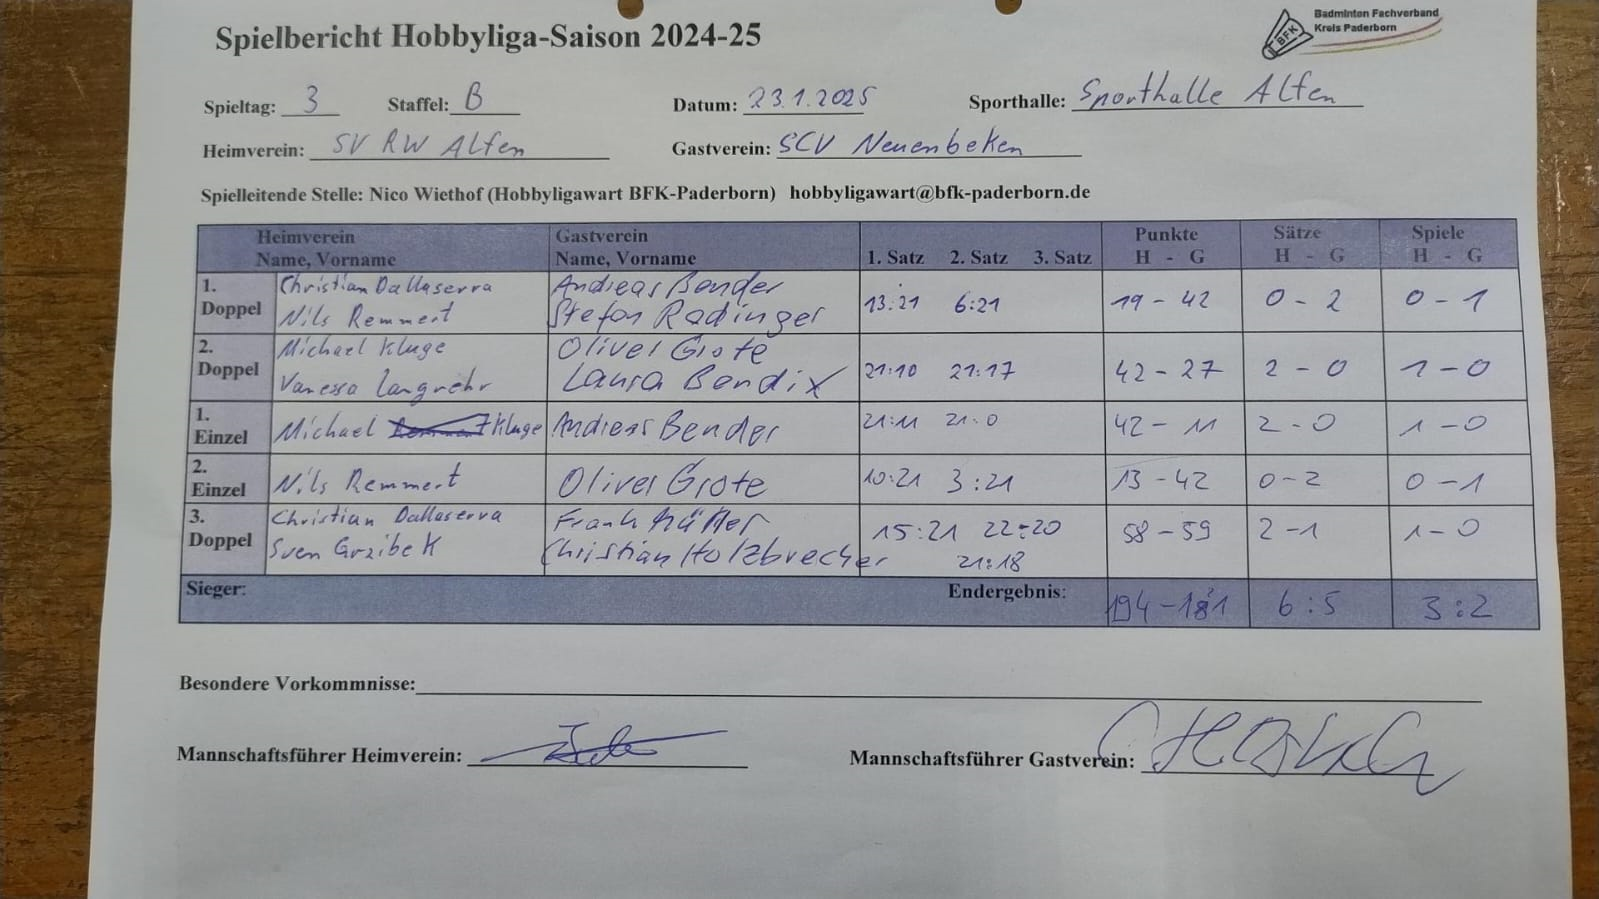 Spielbericht Hobbyliga-Saison 2024-25
BFK
Badminton Fachverband
Kreis Paderborn
Spieltag: 3 Staffel: B Datum: 23.1.2025 Sporthalle: Sporthalle Alfen
Heimverein: SV RW Alfen Gastverein: SCV Neuenbeken
Spielleitende Stelle: Nico Wiethof (Hobbyligawart BFK-Paderborn) hobbyligawart@bfk-paderborn.de
Heimverein Gastverein Punkte Sätze Spiele
Name, Vorname Name, Vorname 1. Satz 2. Satz 3. Satz H - G H - G H - G
1. Christian Dallaserra Andreas Bender
Doppel Nils Remmert Stefan Radinger 13:21 6:21 19 - 42 0 - 2 0 - 1
2. Michael Kluge Oliver Grote
Doppel Vanessa Langrehr Laura Bendix 21:10 21:17 42 - 27 2 - 0 1 - 0
1.
Einzel Michael Kluge Andreas Bender 21:11 21:0 42 - 11 2 - 0 1 - 0
2.
Einzel Nils Remmert Oliver Grote 10:21 3:21 13 - 42 0 - 2 0 - 1
3. Christian Dallaserra Frank
Doppel Sven Grzibek Christian Holzbrecher 15:21 22:20 58 - 59 2 - 1 1 - 0
21:18
Sieger: Endergebnis: 194 - 181 6:5 3:2
Besondere Vorkommnisse:
Mannschaftsführer Heimverein: Mannschaftsführer Gastverein: